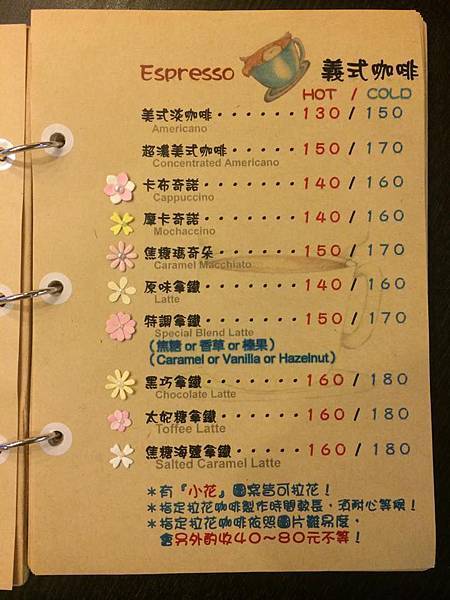 Espresso 義式咖啡
HOT / COLD
美式淡咖啡······130 / 150
Americano
超濃美式咖啡·····150 / 170
Concentrated Americano
卡布奇諾·······140 / 160
Cappuccino
摩卡奇諾·······140 / 160
Mochaccino
焦糖瑪奇朵······150 / 170
Caramel Macchiato
原味拿鐵·······140 / 160
Latte
特調拿鐵·······150 / 170
Special Blend Latte
(焦糖 or 香草 or 榛果)
(Caramel or Vanilla or Hazelnut)
黑巧拿鐵·······160 / 180
Chocolate Latte
太妃糖拿鐵······160 / 180
Toffee Latte
焦糖海鹽拿鐵·····160 / 180
Salted Caramel Latte
*有『小花』圖案皆可拉花！
*指定拉花咖啡製作時間較長，須耐心等候！
*指定拉花咖啡依照圖片難易度，
會另外酌收40～80元不等！